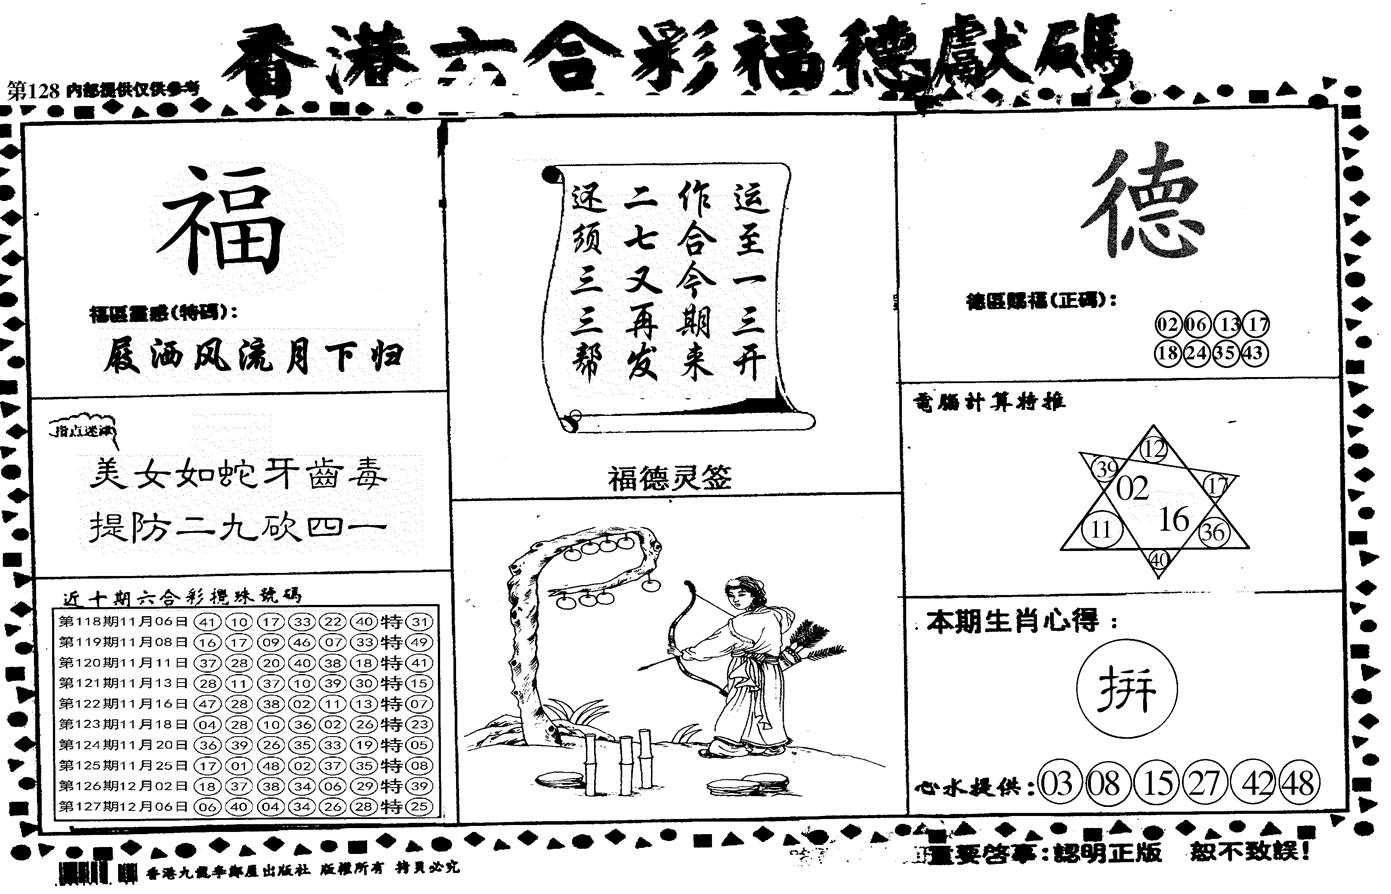 香港六合彩福德獻碼
第128 内部提供仅供参考
福
福區靈感(特碼):
屐洒风流月下归
指点迷津
美女如蛇牙齒毒
提防二九砍四一
近十期六合彩攪珠號碼
第118期11月06日 41 10 17 33 22 40 特 31
第119期11月08日 16 17 09 46 07 33 特 49
第120期11月11日 37 28 20 40 38 18 特 41
第121期11月13日 28 11 37 10 39 30 特 15
第122期11月16日 47 28 38 02 11 13 特 07
第123期11月18日 04 28 10 36 02 26 特 23
第124期11月20日 36 39 26 35 33 19 特 05
第125期11月25日 17 01 48 02 37 35 特 08
第126期12月02日 18 37 38 34 06 29 特 39
第127期12月06日 06 40 04 34 26 28 特 25
运至一三开
作合今期来
二七又再发
还须三三帮
福德灵签
德
德區賜福(正碼):
02 06 13 17
18 24 35 43
電腦計算特推
12
39
02
17
11
16
36
40
本期生肖心得:
拼
心水提供: 03 08 15 27 42 48
重要啓事:認明正版 恕不致誤!
版權所有 拷貝必究